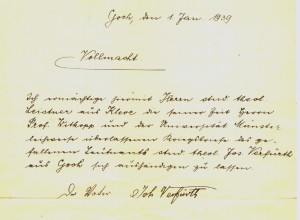 Goch, den 1 Jan 1939
Vollmacht
Ich ermächtige hiermit Herrn stud theol
aus Kleve die seiner Zeit Herrn
Prof. Witkopp und der Universität Münster
leihweise überlassenen Kriegsbriefe des ge-
fallenen Leutnants stud theol Jos Verfürth
aus Goch sich aushändigen zu lassen
Der Vater Joh Verfürth